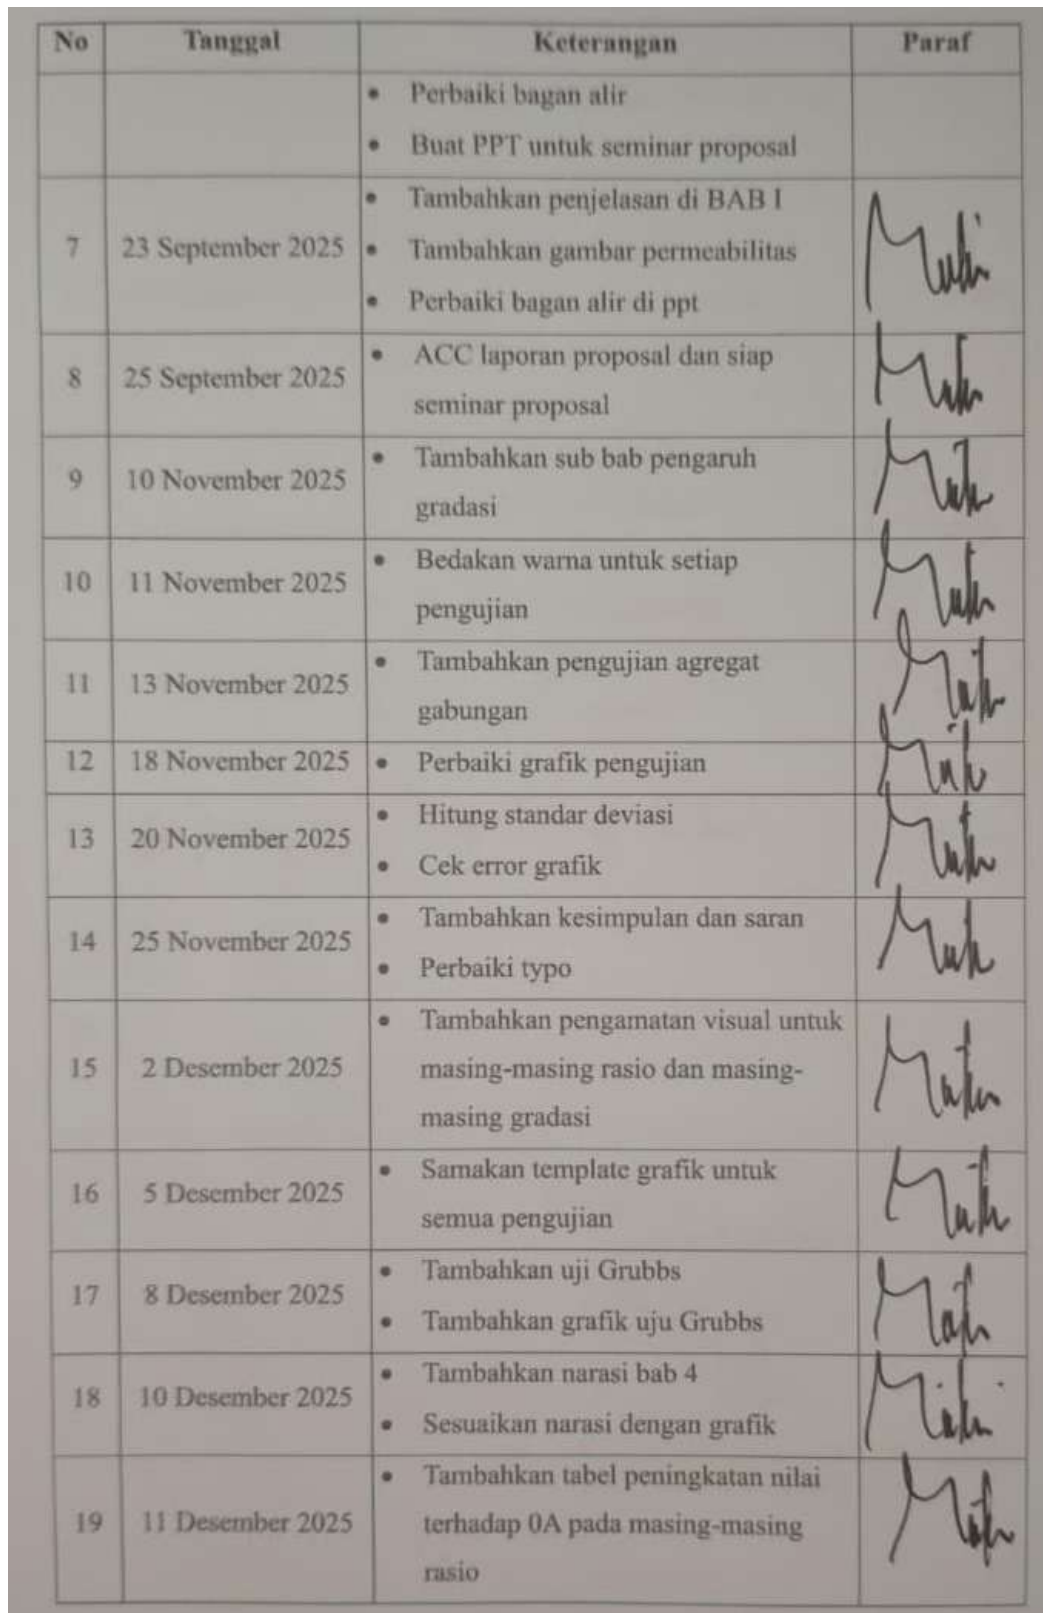 No Tanggal Keterangan Paraf
• Perbaiki bagan alir
• Buat PPT untuk seminar proposal
7 23 September 2025
• Tambahkan penjelasan di BAB I
• Tambahkan gambar permeabilitas
• Perbaiki bagan alir di ppt
8 25 September 2025
• ACC laporan proposal dan siap
seminar proposal
9 10 November 2025
• Tambahkan sub bab pengaruh
gradasi
10 11 November 2025
• Bedakan warna untuk setiap
pengujian
11 13 November 2025
• Tambahkan pengujian agregat
gabungan
12 18 November 2025 • Perbaiki grafik pengujian
13 20 November 2025
• Hitung standar deviasi
• Cek error grafik
14 25 November 2025
• Tambahkan kesimpulan dan saran
• Perbaiki typo
15 2 Desember 2025
• Tambahkan pengamatan visual untuk
masing-masing rasio dan masing-
masing gradasi
16 5 Desember 2025
• Samakan template grafik untuk
semua pengujian
17 8 Desember 2025
• Tambahkan uji Grubbs
• Tambahkan grafik uju Grubbs
18 10 Desember 2025
• Tambahkan narasi bab 4
• Sesuaikan narasi dengan grafik
19 11 Desember 2025
• Tambahkan tabel peningkatan nilai
terhadap 0A pada masing-masing
rasio